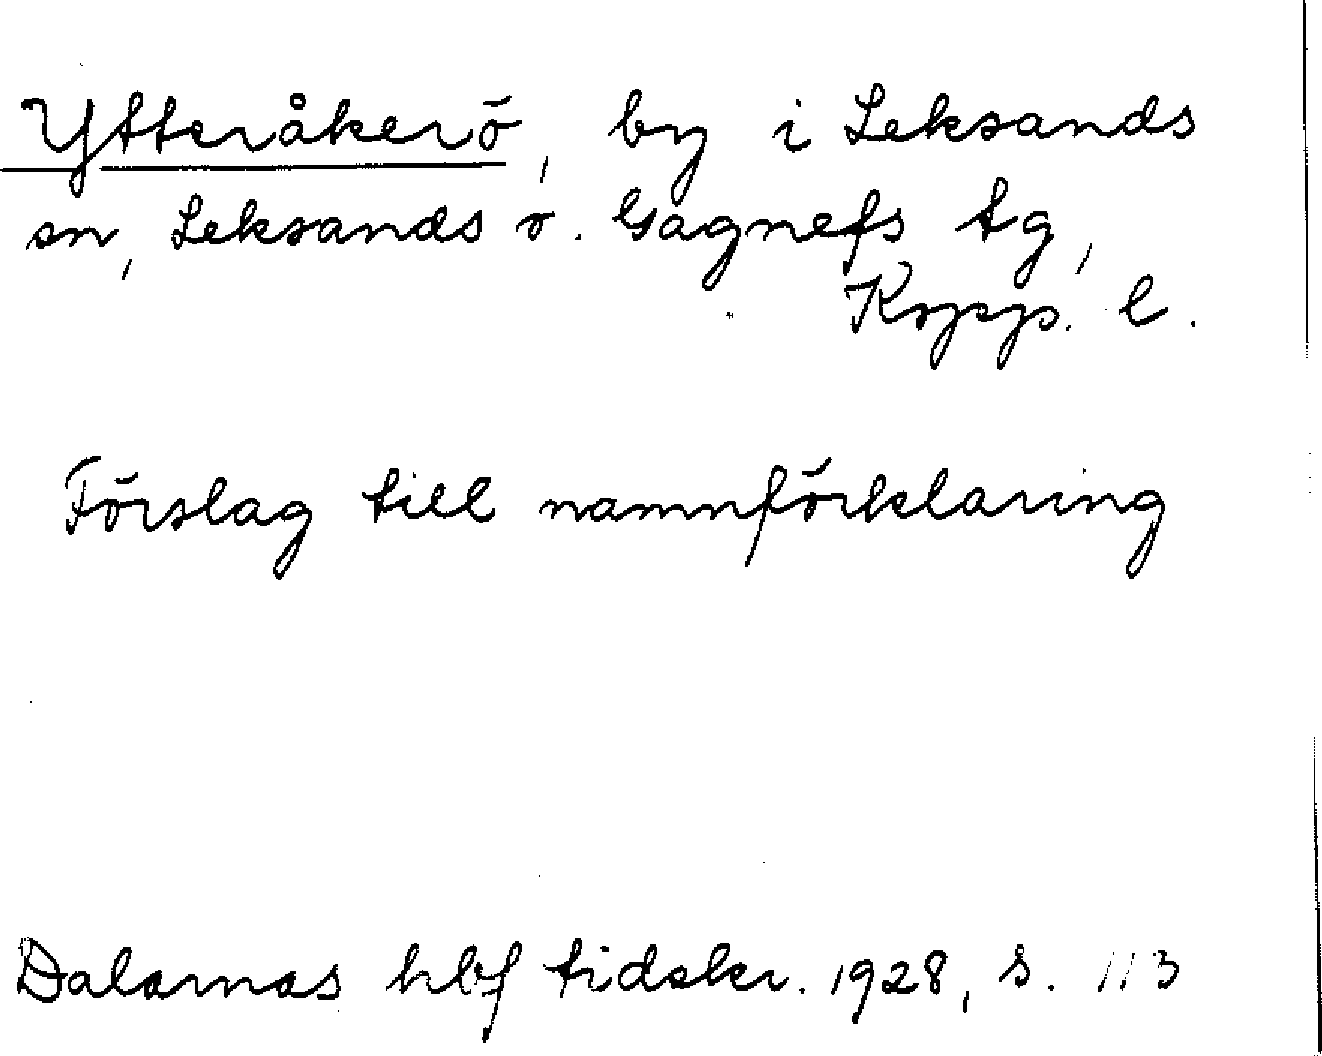 Ytteråkerö, by i Leksands
sn, Leksands o. Gagnefs tg,
Kopp. l.
Förslag till namnförklaring
Dalarnas hbf tidskr. 1928, s. 113